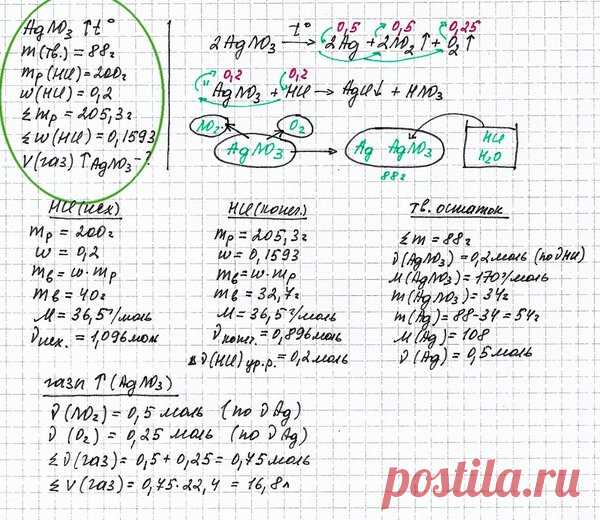 AgNO₃ ↑t°
m(тв.) = 88г
mр(HCl) = 200г
w(HCl) = 0,2
Σmр = 205,3г
Σw(HCl) = 0,1593
V(газ)↑AgNO₃ - ?
t° 0,5 0,5 0,25
2AgNO₃ → 2Ag + 2NO₂↑ + O₂↑
0,2 0,2
AgNO₃ + HCl → AgCl↓ + HNO₃
NO₂ O₂
AgNO₃ → Ag AgNO₃
88г
HCl
H₂O
HCl (исх)
mр = 200г
w = 0,2
mв = w·mр
mв = 40г
M = 36,5г/моль
νисх. = 1,096мол
HCl (конег.)
mр = 205,3г
w = 0,1593
mв = w·mр
mв = 32,7г
M = 36,5г/моль
νконег. = 0,896моль
Δν(HCl) ур.р. = 0,2моль
тв. остаток
Σm = 88г
ν(AgNO₃) = 0,2моль (по νHCl)
M(AgNO₃) = 170г/моль
m(AgNO₃) = 34г
m(Ag) = 88-34 = 54г
M(Ag) = 108
ν(Ag) = 0,5моль
газы ↑(AgNO₃)
ν(NO₂) = 0,5 моль (по νAg)
ν(O₂) = 0,25 моль (по νAg)
Σν(газ) = 0,5 + 0,25 = 0,75моль
ΣV(газ) = 0,75·22,4 = 16,8л
postila.ru